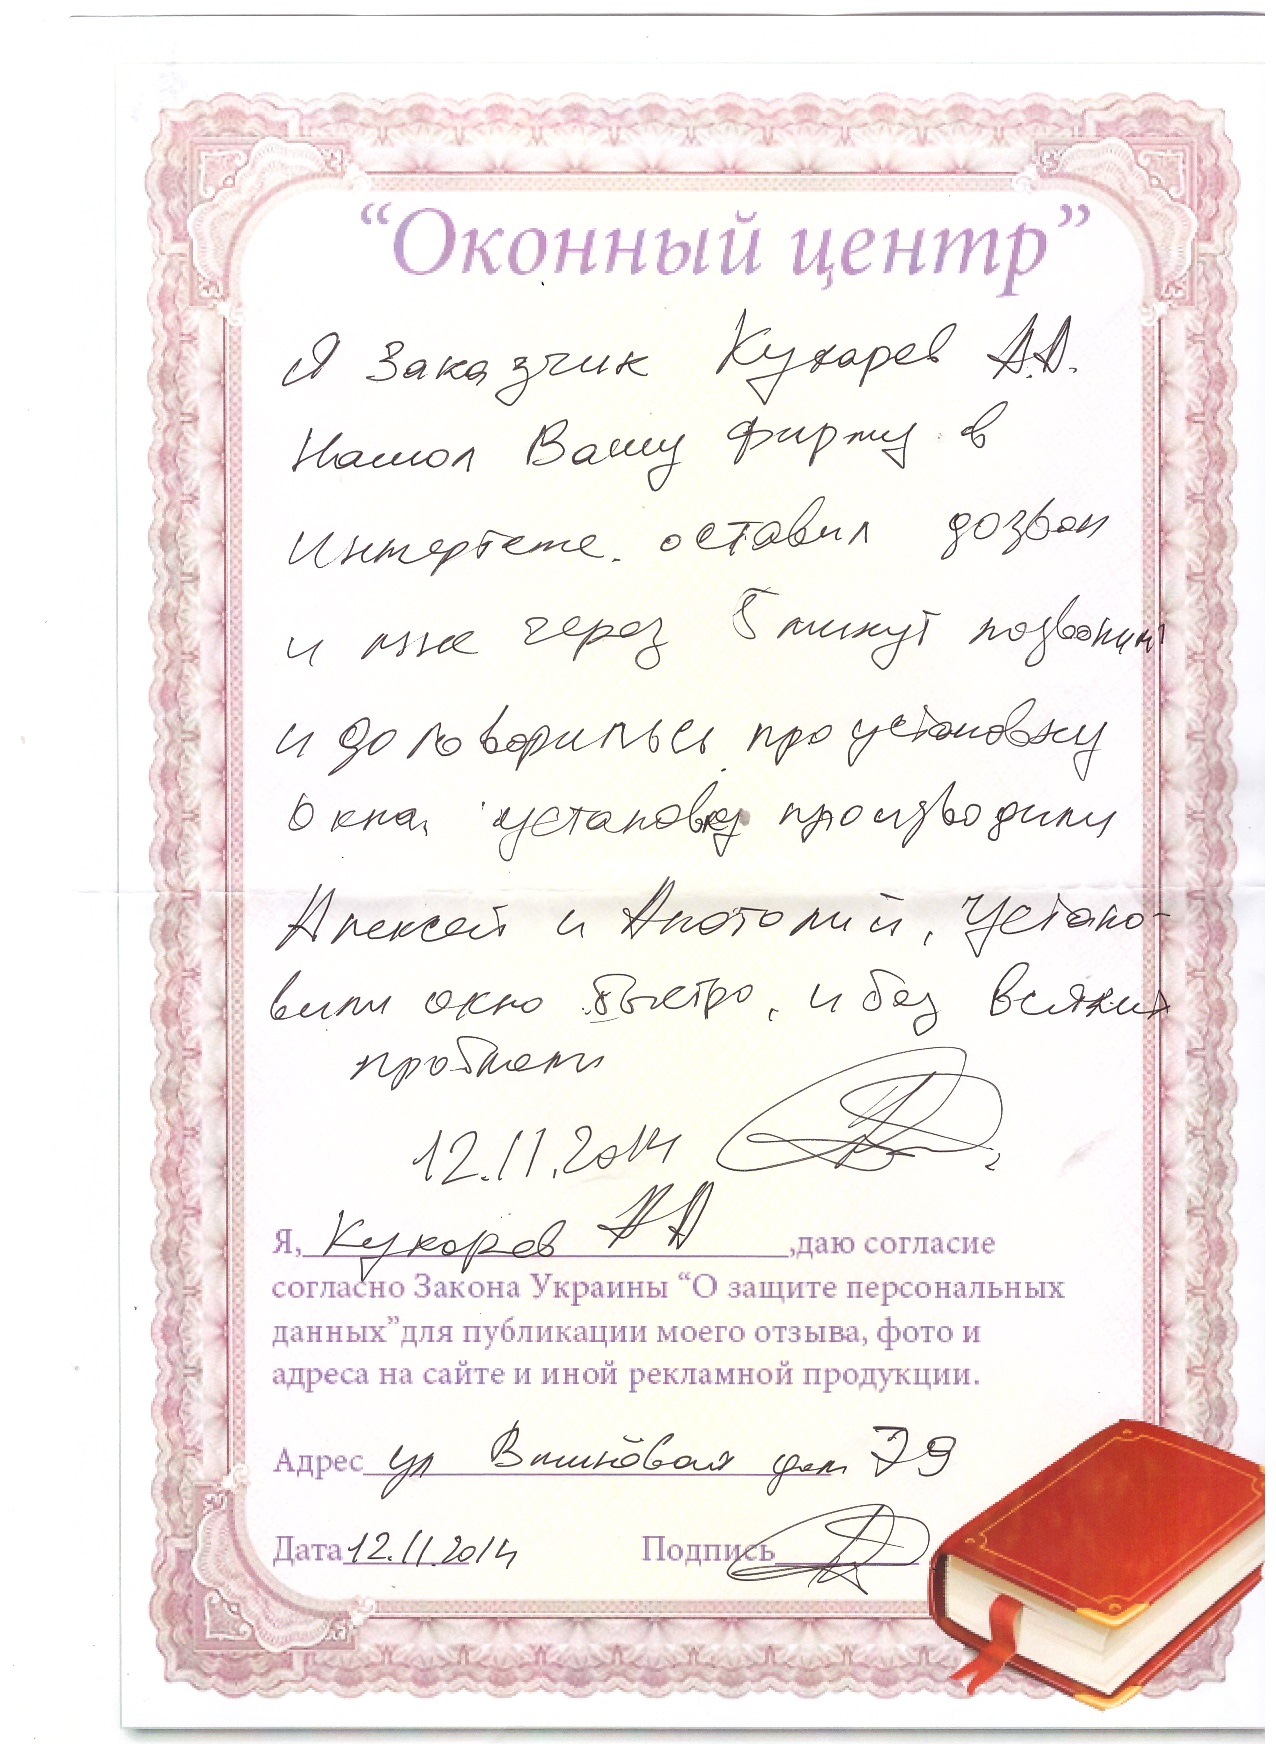 “Оконный центр”
Я Заказчик Кухарев А.А.
Нашол Вашу фирму в
Интернете. оставил дозвон
и мне через 5 минут позвонили
и договорились про установку
окна, установку производили
Алексей и Анатолий, Устано-
вили окно быстро, и без всяких
проблем
12.11.2014
Я, Кухарев А А ,даю согласие
согласно Закона Украины “О защите персональных
данных”для публикации моего отзыва, фото и
адреса на сайте и иной рекламной продукции.
Адрес ул дом 79
Дата 12.11.2014 Подпись